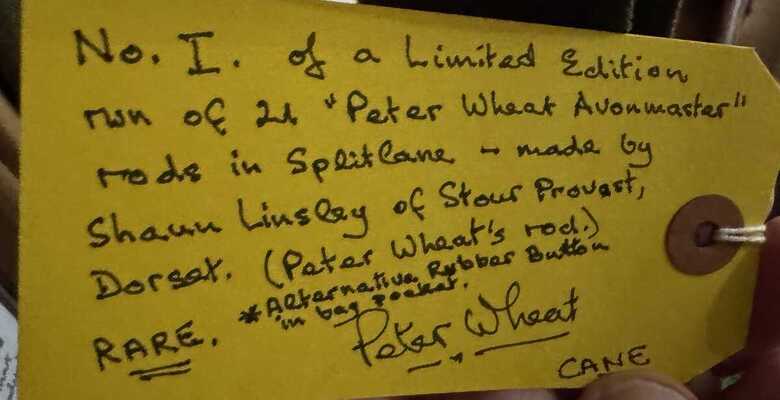 No. I. of a Limited Edition
run of 21 "Peter Wheat Avonmaster"
rods in SplitCane - made by
Shaun Linsley of Stour Provost,
Dorset. (Peter Wheat's rod.)
RARE. *Alternative Rubber Button
in bag pocket.
Peter Wheat
CANE